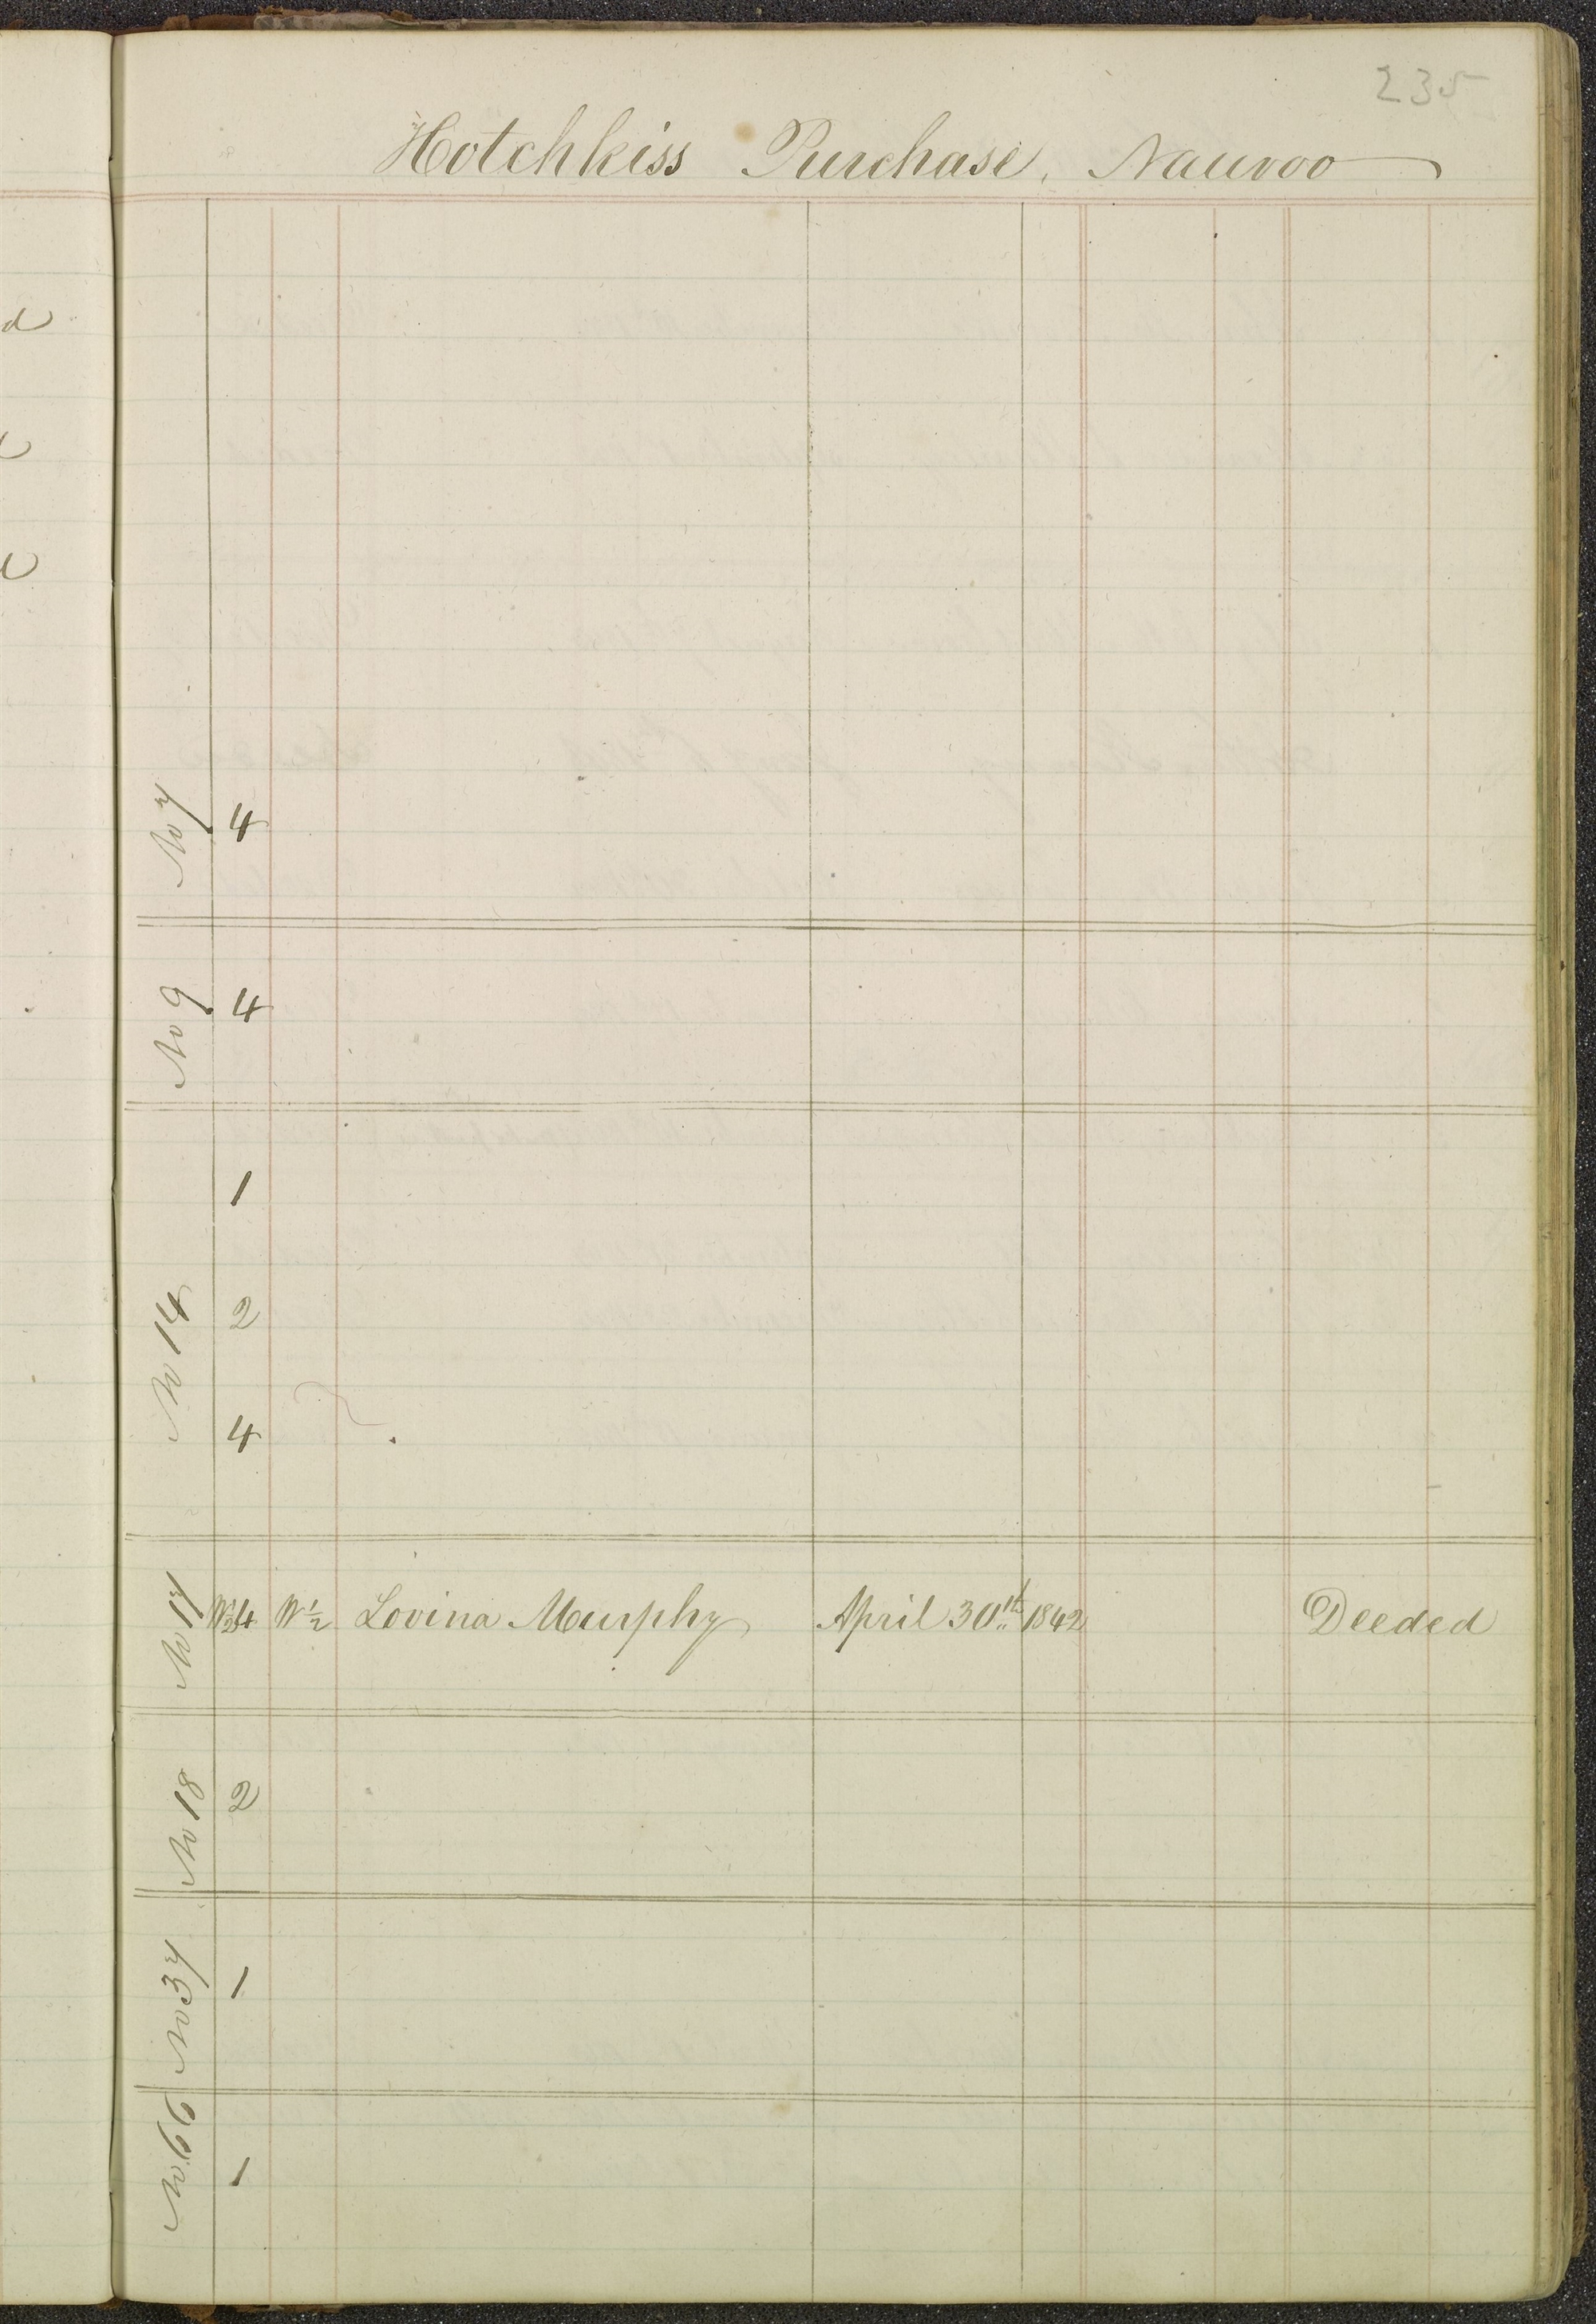 235
Hotchkiss Purchase, Nauvoo
No 7 4
No 9 4
1
No 14 2
4
No 17 4 W 1/2 Lovina Murphy April 30th 1842 Deeded
No 18 2
No 37 1
No 66 1